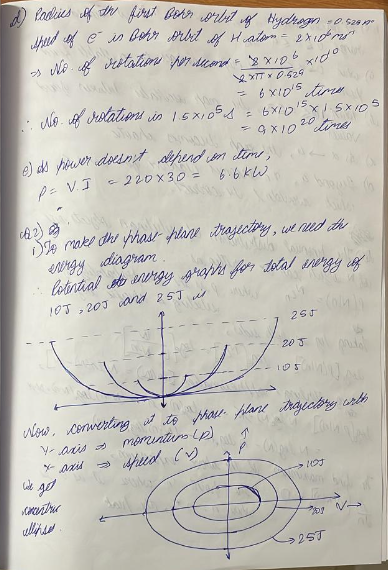 d) Radius of the first Bohr orbit of Hydrogen = 0.529 Å
speed of e⁻ in Bohr orbit of H atom = 2×10⁶ m/s
⇒ No. of rotations per second = 2×10⁶ / 2×π×0.529 ×10¹⁰
= 6×10¹⁵ times
∴ No. of rotations in 1.5×10⁵ s = 6×10¹⁵×1.5×10⁵
= 9×10²⁰ times
e) As power doesn't depend on time,
P = V.I = 220×30 = 6.6 kW
Q2)
i) To make the phase-plane trajectory, we need the
energy diagram.
Potential energy graphs for total energy of
10J, 20J and 25J is
25J
20J
10J
Now, converting it to phase-plane trajectory with
Y-axis ⇒ momentum (p)
X-axis ⇒ speed (v)
we get
concentric
ellipses.
P
10J
20J
V→
25J